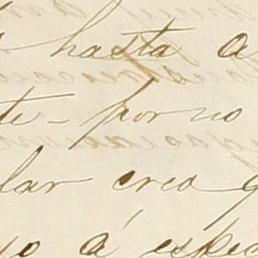 hasta a
te- por no
lar creo q
yo á espec